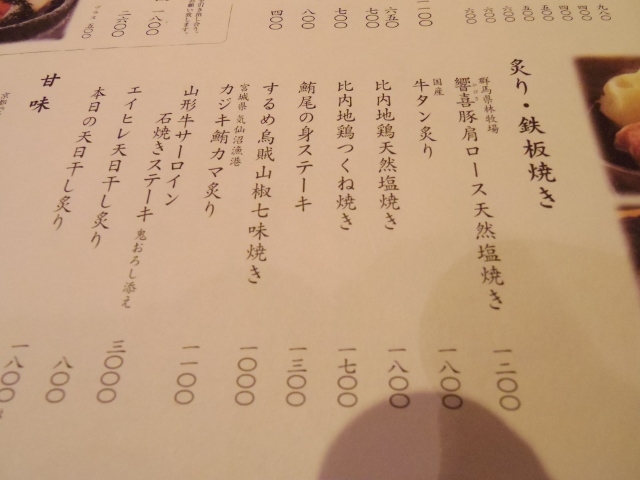 九八〇
四〇〇
四〇〇
五〇〇
五〇〇
六五〇
七〇〇
七〇〇
八〇〇
四〇〇
一八〇〇
二六〇〇
五〇〇
炙り・鉄板焼き
群馬県林牧場
響喜豚肩ロース天然塩焼き 一二〇〇
国産
牛タン炙り 一八〇〇
比内地鶏天然塩焼き 一八〇〇
比内地鶏つくね焼き 一七〇〇
鮪尾の身ステーキ 一三〇〇
するめ烏賊山椒七味焼き 一〇〇〇
宮城県 気仙沼漁港
カジキ鮪カマ炙り 一一〇〇
山形牛サーロイン
石焼きステーキ 鬼おろし添え 三〇〇〇
エイヒレ天日干し炙り 八〇〇
本日の天日干し炙り 一八〇〇
甘味